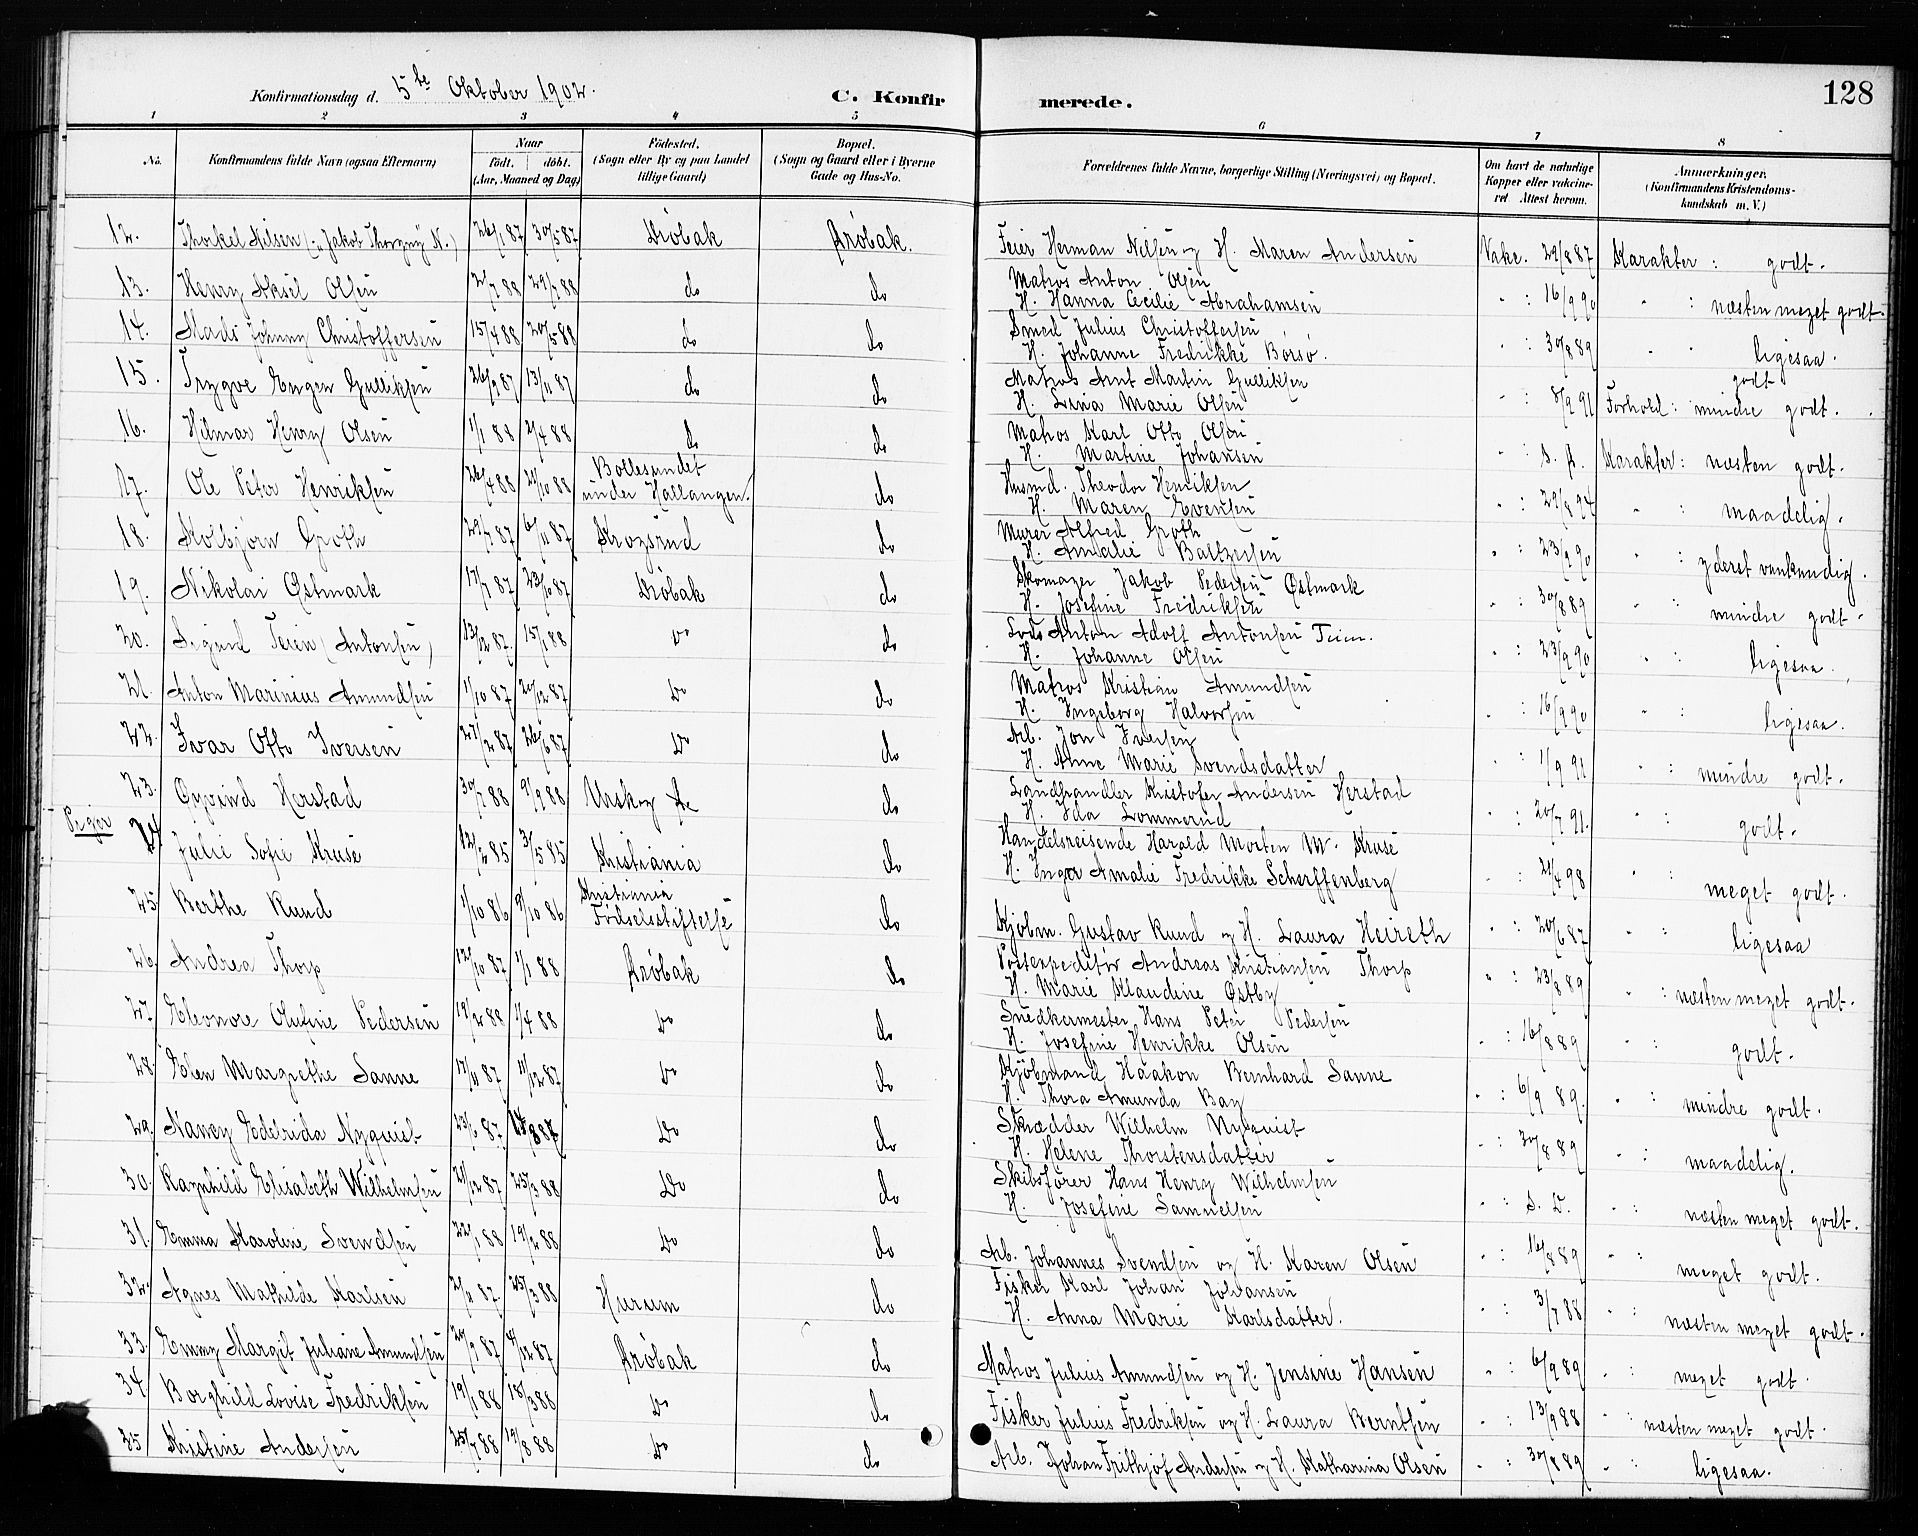 Konfirmationsdag d. 5te Oktober 1902.
C. Konfirmerede.
128
1 2 3 4 5 6 7 8
No.
Konfirmandens fulde Navn (ogsaa Efternavn)
Naar født. døbt. (Aar, Maaned og Dag)
Fødested. (Sogn eller By og paa Landet tillige Gaard)
Bopæl. (Sogn og Gaard eller i Byerne Gade og Hus-No.
Forældrenes fulde Navne, borgerlige Stilling (Næringsvei) og Bopæl.
Om havt de naturlige Kopper eller vakcineret Attest herom.
Anmærkninger. (Konfirmandens Kristendomskundskab m. V.)
12. Thorkel Nilsen (: Jakob Thorgny N.) 26/1 87 30/5 87 Drøbak Drøbak. Feier Herman Nilsen og H. Maren Andersen Vakc. 29/8 87 Karakter : godt.
13. Henry Aksel Olsen 2/7 88 29/7 88 do do Matros Anton Olsen H. Hanna Cecilie Abrahamsen " : 16/9 90 " : næsten meget godt.
14. Mads Johnny Christoffersen 15/4 88 20/5 88 do do Smed Julius Christoffersen H. Johanne Fredrikke Borsø. " : 30/8 89 " " ligesaa.
15. Trygve Eugen Gulliksen 26/9 87 13/11 87 do do Matros Arnt Martin Gulliksen H. Lina Marie Olsen " : 8/9 91 Forhold : godt mindre godt.
16. Hilmar Henry Olsen 1/1 88 2/4 88 do do Matros Karl Otto Olsen H. Martine Johansen " : s. D. Karakter : næsten godt.
17. Ole Peter Henriksen 26/4 88 21/10 88 Bollesundet under Hallangen. do Husmd. Theodor Henriksen H. Maren Evensen " : 29/8 94 " : maadelig.
18. Kolbjørn Groth 29/7 87 6/11 87 Krogsrud do Murer Alfred Groth H. Amalie Baltzersen " : 23/9 90 " : yderst vankundig.
19. Nikolai Østmark 17/7 87 23/10 87 Drøbak do Skomager Jakob Pedersen Østmark H. Josefine Fredriksen " : 30/8 89 " : mindre godt.
20. Sigurd Feien (Antonsen) 13/12 87. 15/1 88 Do do Lods Anton Adolf Antonsen Feien. H. Johanne Olsen " : 23/9 90 " : ligesaa.
21. Anton Marinius Amundsen 1/10 87 20/12 87 Do do Matros Kristian Amundsen H. Ingeborg Halvorsen " : 16/9 90 " : ligesaa.
22. Ivar Otto Iversen 27/2 87 26/6 87 Do do Arb. Jon Iversen H. Anne Marie Svendsdatter " : 1/9 91 " : mindre godt.
23. Øyvind Herstad 30/7 88 9/9 88 do Landhandler Kristofer Andersen Herstad H. Ida Lommerud " : 20/7 91. " : godt.
Piger
24 Julie Sofie Kruse 12/2 85 3/5 85 Kristiania do Handelsreisende Harald Morten M. Kruse H. Inga Amalie Fredrikke Scherffenberg " : 21/4 98 " : meget godt.
25 Berthe Ruud 1/10 86 9/10 86 Kristiania Fødselsstiftelse do Kjøbm. Gustav Ruud og H. Laura Heireth " : 20/6 87 " : ligesaa
26. Andrea Thorp 12/10 87 1/1 88 Drøbak do Postexpeditør Andreas Kristiansen Thorp H. Marie Klaudine Østby " : 23/8 89 " : næsten meget godt.
27. Eleonore Olufine Pedersen 19/2 88 1/4 88 Do do Snedkermester Hans Peter Pedersen H. Josefine Henrikke Olsen " : 16/8 89 " : godt.
28. Ellen Margrethe Sanne 17/11 87 11/12 87 Do do Kjøbmand Haakon Bernhard Sanne H. Thora Amunda Bay " : 6/9 89. " : mindre godt.
29. Nancy Edelrida Nyquist 23/6 87 14/8 87 Do do Skrædder Wilhelm Nyquist H. Helene Thorstensdatter " : 30/8 89 " : maadelig.
30. Ragnhild Elisabeth Wilhelmsen 21/12 87 25/3 88 Do do Skibsfører Hans Henry Wilhelmsen H. Josefine Samuelsen " : s. D. " : næsten meget godt.
31. Emma Karoline Svendsen 22/1 88 19/2 88 Do do Arb. Johannes Svendsen og H. Karen Olsen " : 16/8 89 " : meget godt.
32. Agnes Mathilde Karlsen 21/11 87 25/3 88 Hurum do Fisker Karl Johan Johansen H. Anna Marie Karlsdatter. " : 3/7 88 " : næsten meget godt.
33. Emmy Margit Juliane Amundsen 20/9 87 4/12 87 Drøbak do Matros Julius Amundsen og H. Jensine Hansen " : 6/9 89 " : meget godt.
34. Borghild Lovise Fredriksen 19/1 88 18/3 88 Do do Fisker Julius Fredriksen og H. Laura Berntsen " : 13/9 88 " : næsten meget godt.
35 Kristine Andersen 25/7 88 19/8 88 Do do Arb. Johan Frithjof Andersen og H. Katharina Olsen " : 30/8 89 " : ligesaa.